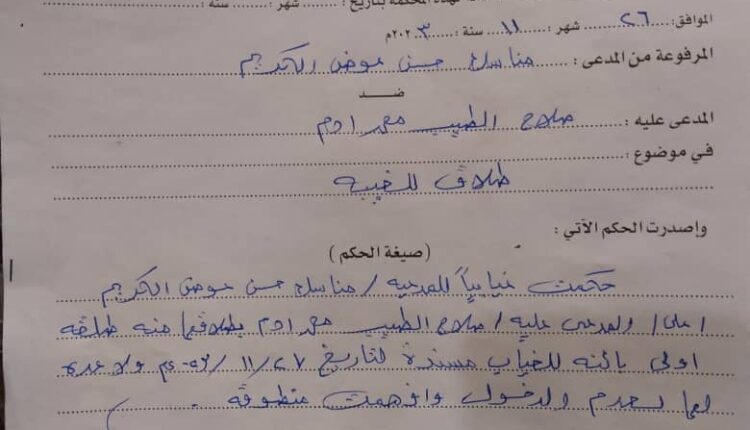 لهذه المحكمة بتاريخ : ........ شهر : ........ سنة : ........
الموافق: ٢٦ شهر : ١١ سنة : ٢٠٢٣م
المرفوعة من المدعى : مناسك حسن عوض الكريم
ضد
المدعى عليه : صلاح الطيب محمد ادم
في موضوع :
طلاق للغيبة
وإصدرت الحكم الآتي :
(صيغة الحكم )
حكمت غيابياً للمدعيه / مناسك حسن عوض الكريم
/ على / المدعى عليه / صلاح الطيب محمد ادم بطلاقها منه طلقه
اولى بائنه للغياب مسندة لتاريخ ٢٧/١١/ ولا عدة
لها لعدم الدخول وافهمت منطوقه